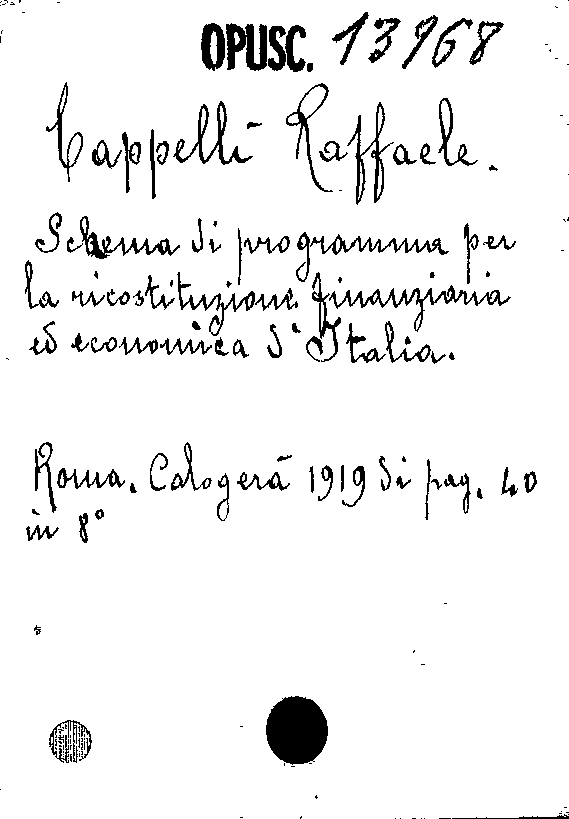 OPUSC. 13968
Cappelli Raffaele.
Schema di programma per
la ricostituzione finanziaria
ed economica d'Italia.
Roma. Calogerà 1919 di pag. 40
in 8°